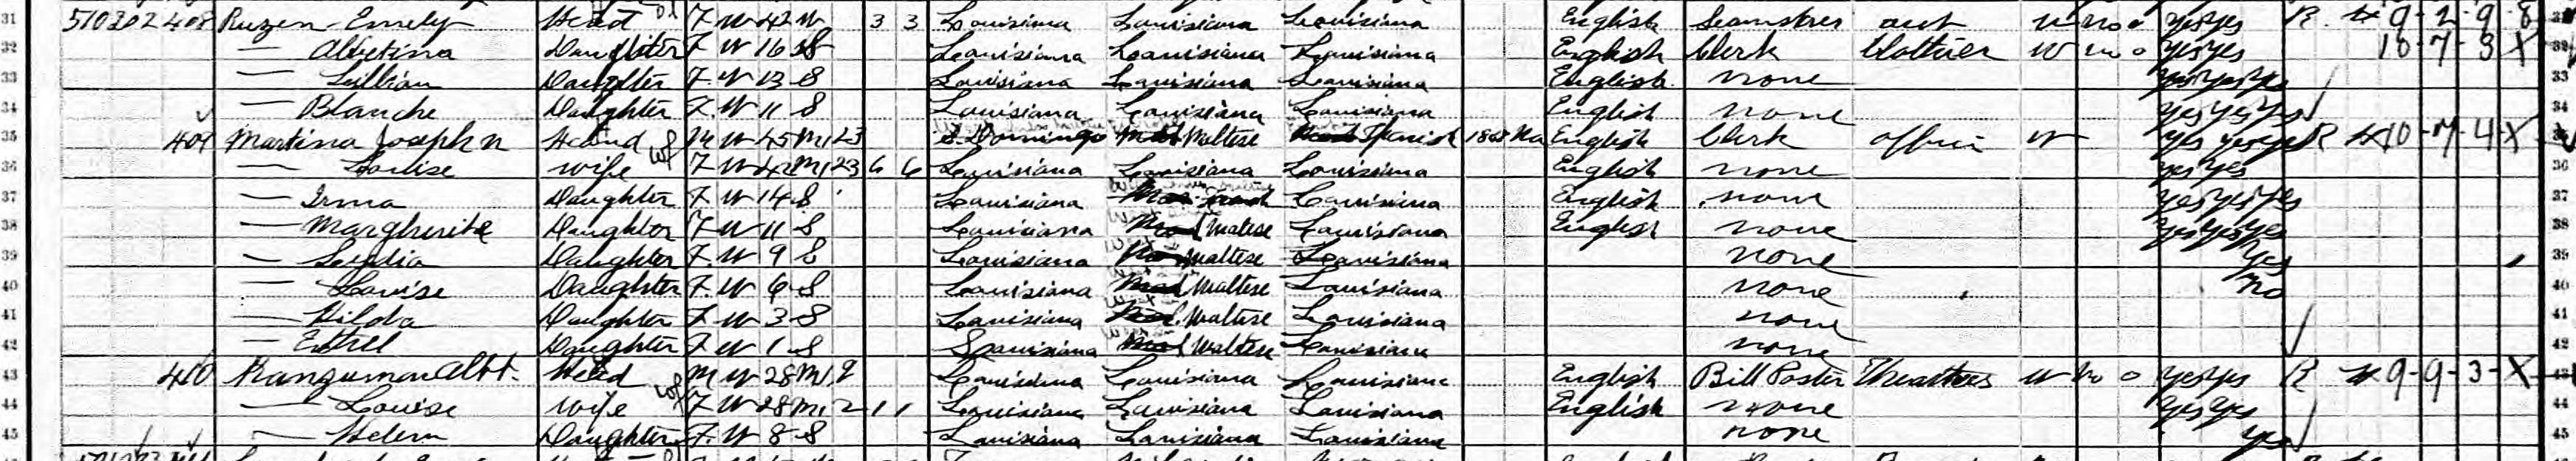 31 510 302 408 Ruzen Emely Head F W 42 W 3 3 Louisiana Louisiana Louisiana English Seamstress out W no 0 yes yes R 9-2-9-8
32 — Albertina Daughter F W 16 S Louisiana Louisiana Louisiana English Clerk Clothier W no 0 yes yes 10-7-3-X
33 — Lillian Daughter F W 13 S Louisiana Louisiana Louisiana English none yes yes yes 33
34 — Blanche Daughter F W 11 S Louisiana Louisiana Louisiana English none yes yes yes 34
35 409 Martina Joseph N Head M W 45 M1 23 S. Domingo Maltese Spanish 1868 Na English Clerk office W yes yes yes R 10-7-4-X
36 — Louise wife F W 42 M1 23 6 6 Louisiana Louisiana Louisiana English none yes yes 36
37 — Irma Daughter F W 14 S Louisiana Louisiana English none yes yes yes 37
38 — Margherite Daughter F W 11 S Louisiana Maltese Louisiana English none yes yes yes 38
39 — Daughter F W 9 S Louisiana Maltese Louisiana none yes 39
40 — Louise Daughter F W 6 S Louisiana Maltese Louisiana none no 40
41 — Hilda Daughter F W 3 S Louisiana Maltese Louisiana none 41
42 — Ethel Daughter F W 1 S Louisiana Maltese Louisiana none 42
43 410 Albt. Head M W 28 M1 9 Louisiana Louisiana Louisiana English Bill Poster Theatres W no 0 yes yes R 9-9-3-X 43
44 — Louise wife F W 28 M1 2 1 1 Louisiana Louisiana Louisiana English none yes yes 44
45 — Helen Daughter F W 8 S Louisiana Louisiana Louisiana none yes 45